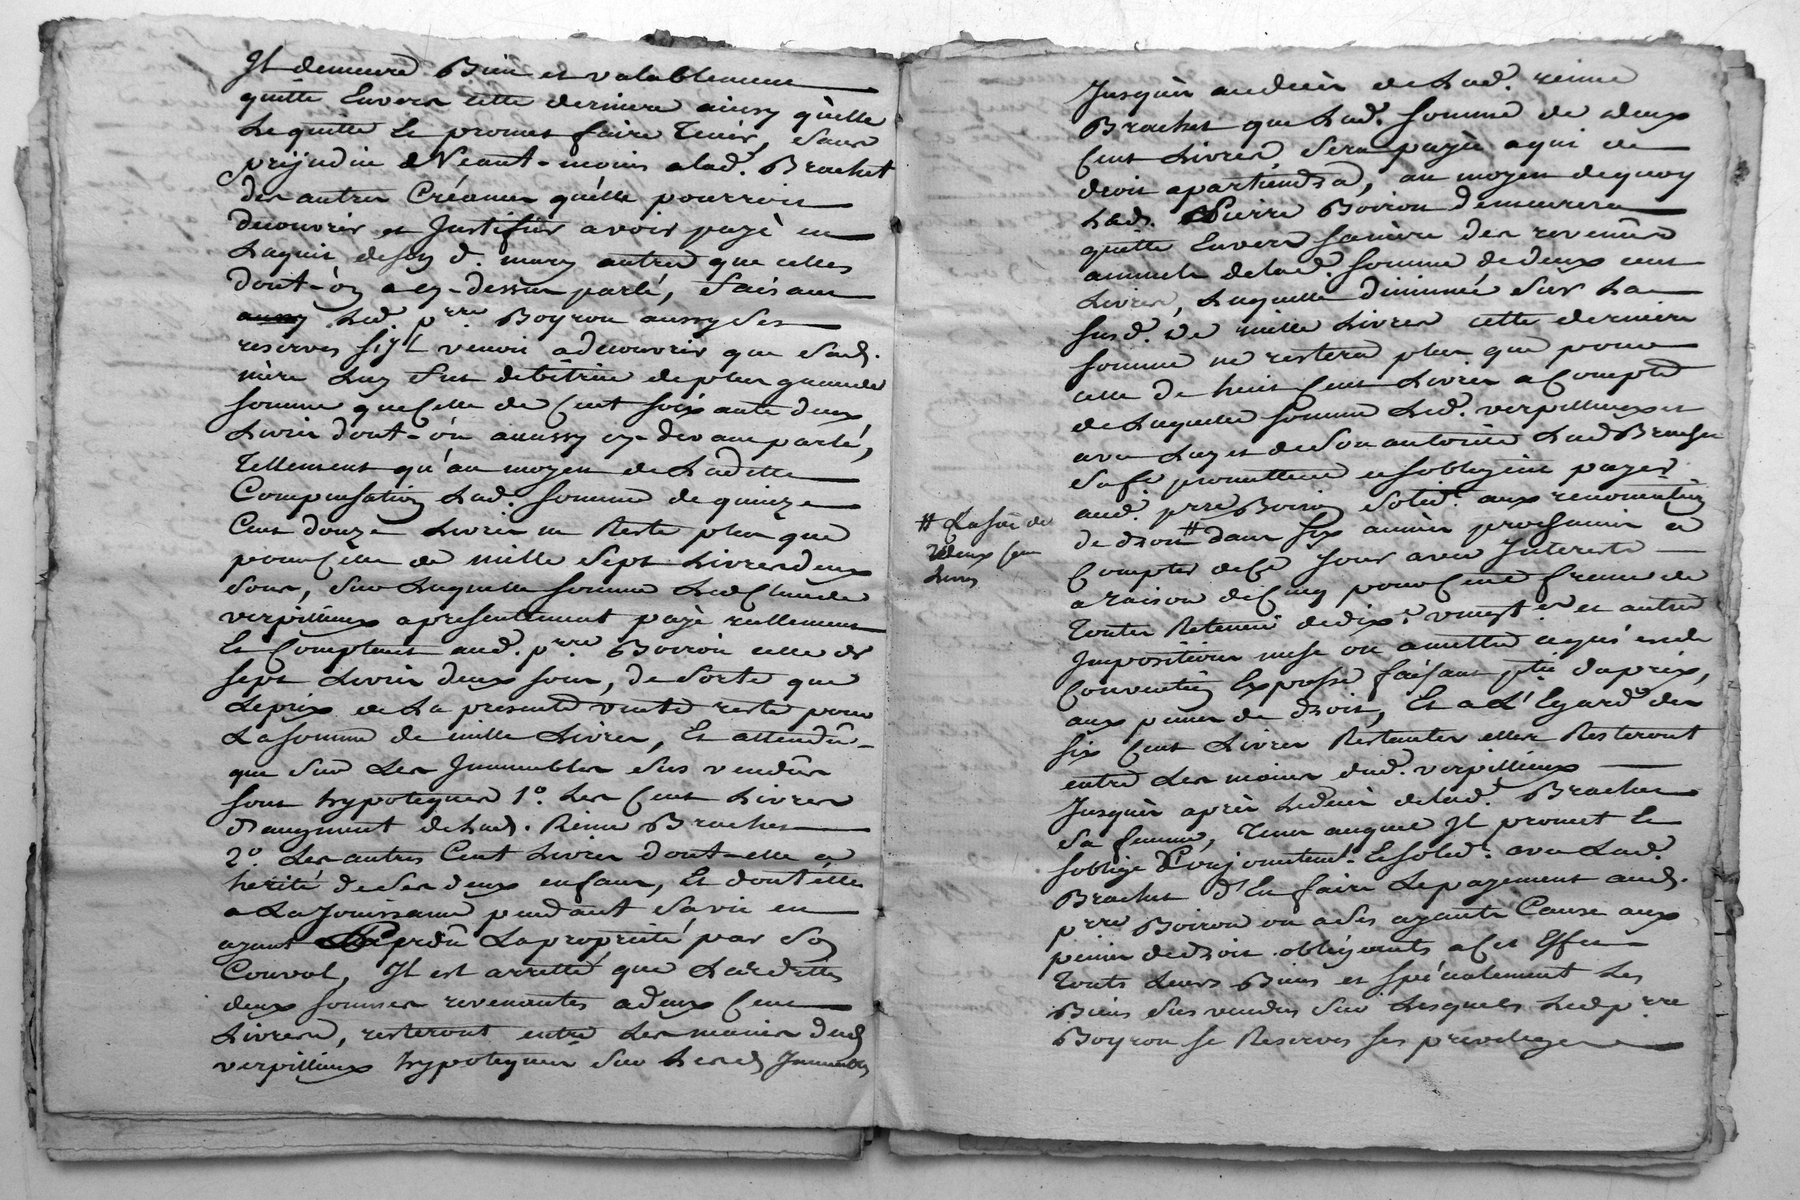 Il demeure Bien et valablement
quitte Envers cette derniere ainsy qu'elle
Le quitte Le promet faire Tenir, sans
prejudice de Néant-moins alad. Brachet
des autres Créances qu'elle pourroit
decouvrir et Justifier avoir payé en
Laquit de soy d. mary autres que celles
dont-on a cy-dessus parlé, faisant
Led. prre Boyron aussy ses
reserves s'il venoit a decouvrir que sad.
mère Luy fut debitrice de plus grande
somme que Celle de Cent soixante deux
Livres dont-on aussy cy-devant parlé,
Tellement qu'au moyen de Ladette
Compensation Lad. somme de quinze
Cent douze Livres ne Reste plus que
pour Celle de mille sept Livres deux
sous, sur Laquelle somme Led Claude
verpillieux a presentement payé reellement
Et Comptant aud. prre Boiron celle de
sept Livres deux sous, de sorte que
Le prix de La presente vente reste pour
La somme de mille Livres, Et attendû
que sur Les Immeubles sus vendûs
sont hypoteques 1º. Les Cent Livres
d'augment de Lad. Reine Brachet
2º. Les autres Cent Livres dont-elle a
herité de ses deux enfans, Et dont elle
a La Jouissance pendant sa vie en
ayant perdû La proprieté par son
Convol, Il est arretté que Lesdittes
deux sommes revenantes a deux Cent
Livres, resteront entre Les mains dud
verpillieux hypoteques sur Lesd Immeubles
Jusqu'au deces de Lad. reine
Brachet que Lad. somme de deux
Cent Livres, sera payée a qui de
droit apartiendra, au moyen de quoy
Led. Pierre Boiron demeurera
quitte Envers sa mère des revenus
annuels de lad. somme de deux cent
Livres, Laquelle diminuée sur La
susd. de mille Livres cette derniere
somme ne restera plus que pour
celle de huit Cent Livres a Compte
de Laquelle somme Led. verpillieux et
avec Luy et de son autorité Lad Brachet
sa fe promettent et s'obligent payer
aud. prre Boiron solid. aux renonciations
de droit # dans six années prochaines a
Compter de Ce Jour avec Interets
a raison de Cinq pour Cent franc de
Toutes Retenues de dix.e vingt.e et autres
Impositions mise ou a mettre ce qui est de
Convention Expresse faisant ptie du prix,
aux peines de droit, Et a L'Egard des
six Cent Livres Restantes elles Resteront
entre Les mains dud. verpillieux
Jusqu'à après Le deces de Lad. Brachet
sa femme, Tems auquel Il promet Et
s'oblige Conjointemt. Et solid. avec Lad.
Brachet d'En faire Le payement aud.
prre Boiron ou a ses ayants Cause aux
peines de droit obligeants a Cet Effet
Touts Leurs Biens et spécialement Les
Biens sus vendus sur Lesquels Led prre
Boyron se Reserves ses privileges
# La somme de
deux Cent
Livres